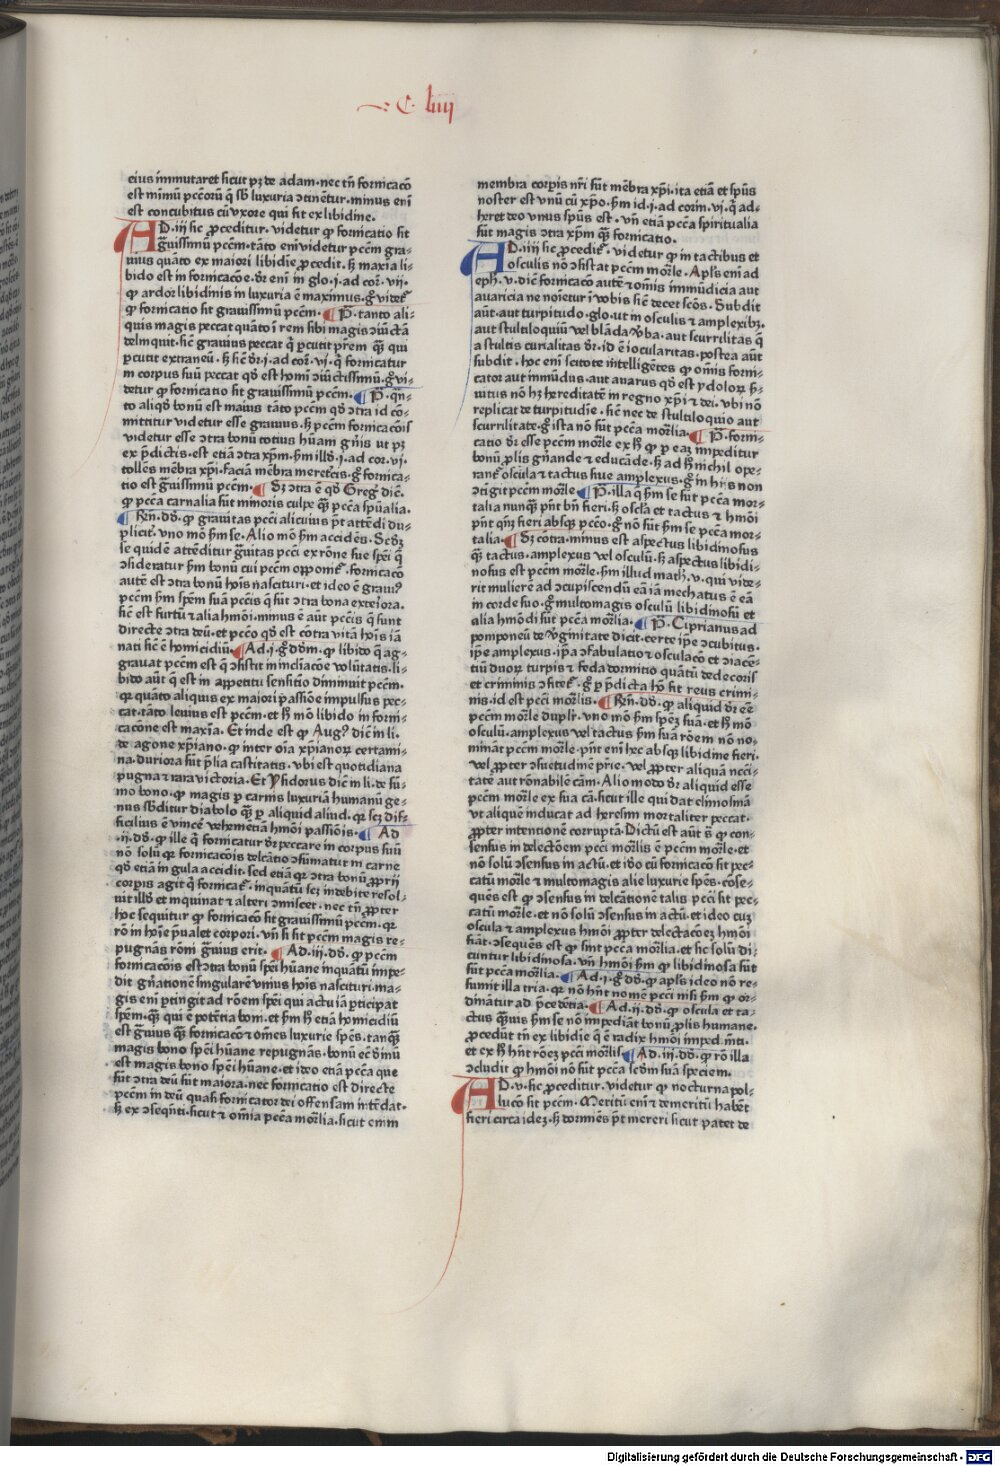 C. liiij
cius immutaret sicut pꝫ de adam·nec tñ fornicacõ
est minimũ pctõrũ q̃ sƀ luxuria ↄtinẽtur·minus eni
est concubitus cũ vxore qui fit ex libidine.
AD.iij sic ꝓceditur·videtur ꝙ fornicatio sit
gͣuissimũ pctm̃·tãto eni videtur pctm̃ gra-
uius quãto ex maiori libidine ꝓcedit·ſꝫ maxia li-
bido est in fornicacõe·dr̃ eni in glo·j·ad cor·vij·
ꝙ ardor libidinis in luxuria ẽ maximus·gͦ videt᷑
ꝙ fornicatio sit grauissimũ pctm̃· P̃·tanto ali-
quis magis peccat quãto ĩ rem sibi magis ↄiũctã
delinquit·sic̃ grauius peccat q̃ ꝑcutit pr̃em q̃ꝫ qui
ꝑcutit extraneũ·ſꝫ sic̃ dr̃·j·ad cor·vj·q̃ fornicatur
in corpus suũ peccat qđ est homĩ ↄiũctissimũ·gͦ vi-
detur ꝙ fornicatio sit grauissimũ pctm̃· P̃·qñ-
to aliqđ bonũ est maius tãto pctm̃ qđ ↄtra id cõ-
mittitur videtur esse grauius·ſꝫ pctm̃ fornicacõis
videtur esse ↄtra bonũ totius hũani gñis ut pꝫ
ex p̃dictis·est etiã ↄtra xp̃m·ẜm illđ·j·ad cor·vj·
tollẽs mẽbra xp̃i·faciã mẽbra meretᵉcis·gͦ fornica-
tio est gͣuissimũ pctm̃· Sꝫ ↄtra ẽ qđ Gregͦ dic̃·
ꝙ pctã carnalia sũt minoris culpe q̃ꝫ pctã sp̃ualia.
Rñ·dđ·ꝙ grauitas pcti alicuius põt attẽdi du-
pliciͭ·vno mõ ẜm se·Alio mõ ẜm accidẽs·Scđꝫ
se quidẽ attẽditur gͣuitas pcti ex rõne sue spẽi q̃
ↄsideratur ẜm bonũ cui pctm̃ opponit᷑·fornicacõ
autẽ est ↄtra bonũ hoĩs nascituri·et ideo ẽ grauiꝰ
pctm̃ ẜm spẽm suã pctis q̃ sũt ↄtra bona exteriora·
sic̃ est furtũ ⁊ alia hmõi·minus ẽ aũt pctis q̃ sunt
directe ↄtra deũ·et pctõ qđ est cõtra vitã hoĩs iã
nati sic̃ ẽ homicidiũ· Ad·j·gͦ dđm·ꝙ libido q̃ ag-
grauat pctm̃ est q̃ ↄsistit in inclĩacõe volũtatis·li-
bido aũt q̃ est in appetitu sensitiuo diminuit pctm̃·
qꝛ quãto aliquis ex maiori passiõe impulsus pec-
cat·tãto leuius est pctm̃·et ẜꝫ mõ libido in forni-
cacõne est maxĩa·Et inde est ꝙ Augꝰ dic̃ in li·
de agone xp̃iano·ꝙ inter oĩa xp̃ianoꝝ certami-
na·duriora sũt p̃lia castitatis·vbi est quotidiana
pugna ⁊ rara victoria·Et ysidorus dic̃ in li·de sũ-
mo bono·ꝙ magis ꝑ carnis luxuriã humanũ ge-
nus sƀditur diabolo q̃ꝫ ꝑ aliquid aliud·qꝛ scꝫ dif-
ficilius ẽ vincẽ vehemẽtiã hmõi passiõis· Ad
·ij·dđ·ꝙ ille q̃ fornicatur dr̃ peccare in corpus suũ
nõ solũ qꝛ fornicacõis delcãtio ↄsumatur in carne
qđ etiã in gula accidit·sed etiã qꝛ ↄtra bonũ ꝓprij
corpis agit q̃ fornicat᷑·inquãtũ scꝫ indebite resol-
uit illđ et inquinat ⁊ alteri ↄmiscet·nec tñ ꝓpter
hoc sequitur ꝙ fornicacõ sit grauissimũ pctm̃·qꝛ
rõ in hoĩe p̃ualet corpori·vñ si sit pctm̃ magis re-
pugnãs rõni gͣuius erit· Ad·iij·dđ·ꝙ pctm̃
fornicacõis est ↄtra bonũ spẽi hũane inquãtũ impe-
dit gñationẽ singularẽ vnius hoĩs nascituri·ma-
gis eni ꝑtingit ad rõem spẽi qui actu iã ꝑticipat
spẽm·q̃ꝫ qui ẽ potẽtia homo·et ẜm ſꝫ etiã homicidiũ
est gͣuius q̃ꝫ fornicacõ ⁊ omẽs luxurie spẽs·tanq̃ꝫ
magis bono spẽi hũane repugnãs·bonũ eci diuinũ
est magis bono spẽi hũane·et ideo etiã pctã que
sũt ↄtra deũ sũt maiora·nec fornicatio est directe
pctm̃ in deũ quasi fornicator dei offensam intẽdat·
ſꝫ ex ↄseq̃nti·sicut ⁊ omĩa pctã mor̃lia·sicut enim
membra corpis nr̃i sũt mẽbra xp̃i·ita etiã et sp̃us
noster est vnũ cũ xp̃o·ẜm id·j·ad corin·vj·q̃ ad-
heret deo vnus sp̃us est·vñ etiã pctã spiritualia
sũt magis ↄtra xp̃m q̃ꝫ fornicatio.
AD·iiij sic ꝓcedit᷑·videtur ꝙ in tactibus et
osculis nõ ↄsistat pctm̃ mor̃le·Apl̃s eni ad
eph·v·dic̃ fornicacõ autẽ ⁊ omĩs immũdicia aut
auaricia ne noĩetur ĩ vobis sic̃ decet sctõs·Subdit
aũt·aut turpitudo·glo·ut in osculis ⁊ amplexibꝫ·
aut stultiloquiũ vel blãda v̾ba·aut scurrilitas q̃
a stultis curialitas dr̃·id ẽ iocularitas·postea aũt
subdit·hoc eni scitote intelligẽtes ꝙ omĩs forni-
cator aut immũdus·aut auarus qđ est ydoloꝝ ẜ-
uitus nõ hꝫ hereditatẽ in regno xp̃i ⁊ dei·vbi nõ
replicat de turpitudĩe·sic̃ nec de stultiloquio aut
scurrilitate·gͦ ista nõ sũt pctã mor̃lia· P̃·forni-
catio dr̃ esse pctm̃ mor̃le ex ẜꝫ ꝙ ꝑ eaꝫ impeditur
bonũ ꝓlis gñande ⁊ educãde·ſꝫ ad ẜꝫ nichil ope-
rant᷑ oscula ⁊ tactus siue amplexus·gͦ in hijs non
ↄtĩgit pctm̃ mor̃le P̃·illa q̃ ẜm se sũt pctã mor-
talia nunq̃ꝫ pñt bñ fieri·ſꝫ oscl̃a et tactus ⁊ hmõi
pñt qñqꝫ fieri absqꝫ pctõ·gͦ nõ sũt ẜm se pctã mor-
talia· Sꝫ cõtra·minus est aspectus libidinosus
q̃ꝫ tactus·amplexus vel osculũ·ſꝫ aspectus libidi-
nosus est pctm̃ mor̃le·ẜm illud math·v·qui vide-
rit mulierẽ ad ↄcupiscendũ eã iã mechatus ẽ eã
in corde suo·gͦ multomagis osculũ libidinosũ et
alia hmõi sũt pctã mor̃lia· P̃·Ciprianus ad
pomponeũ de v̾ginitate dicit·certe ip̃e ↄcubitus·
ip̃e amplexus·ip̃a ↄfabulatio ⁊ osculacõ et ↄiacẽ-
tiũ duoꝝ turpis ⁊ feda dormitio quãtũ dedecoris
et criminis ↄfitet᷑·gͦ ꝑ p̃dicta hõ fit reus crimi-
nis·id est pcti mor̃lis· Rñ·dđ·ꝙ aliquid dr̃ eẽ
pctm̃ mor̃le dupl̃r·vno mõ ẜm spẽꝫ suã·et ẜꝫ mõ
osculũ·amplexus vel tactus ẜm suã rõem nõ no-
minãt pctm̃ mor̃le·pñt eni hec absqꝫ libidine fieri·
vel ꝓpter ↄsuetudinẽ pr̃ie·vel ꝓpter aliquã necci-
tatẽ aut rõnabilẽ cãm·Alio modo dr̃ aliquid esse
pctm̃ mor̃le ex sua cã·sicut ille qui dat elimosinã
vt aliquẽ inducat ad heresim mortaliter peccat·
ꝓpter intentionẽ corruptã·Dictũ est aũt s̃ ꝙ con-
sensus in delectõem pcti mor̃lis ẽ pctm̃ mor̃le·et
nõ solũ ↄsensus in actũ·et iđo cũ fornicacõ sit pec-
catũ mor̃le ⁊ multomagis alie luxurie spẽs·cõse-
quẽs est ꝙ ↄsensus in delcãtione talis pcti sit pec-
catũ mor̃le·et nõ solũ ↄsensus in actũ·et ideo cuꝫ
oscula ⁊ amplexus hmõi ꝓpter delectacõeꝫ hmõi
fiãt·ↄsequẽs est ꝙ sint pctã mor̃lia·et sic solũ di-
cuntur libidinosa·vñ hmõi ẜm ꝙ libidinosa sũt
sũt pctã mor̃lia· Ad·j·gͦ dđ·ꝙ apl̃s ideo nõ re-
sumit illa tria·qꝛ nõ hñt nomẽ pcti nisi ẜm ꝙ or-
dinãtur ad p̃cedẽtia· Ad·ij·dđ·ꝙ oscula et ta-
ctus q̃ꝫuis ẜm se nõ impediãt bonũ ꝓlis humane·
ꝓcedũt tñ ex libidine q̃ ẽ radix hmõi impedimẽti·
et ex ẜꝫ hñt rõeꝫ pcti mor̃lis Ad·iij·dđ·ꝙ rõ illa
ↄcludit ꝙ hmõi nõ sũt pctã scđm suã speciem.
AD·v·sic ꝓceditur·videtur ꝙ nocturna pol-
lucõ sit pctm̃·Meritũ eni ⁊ demeritũ habẽt
fieri circa ideꝫ·ſꝫ dormiẽs põt mereri sicut patet de
Digitalisierung gefördert durch die Deutsche Forschungsgemeinschaft · DFG